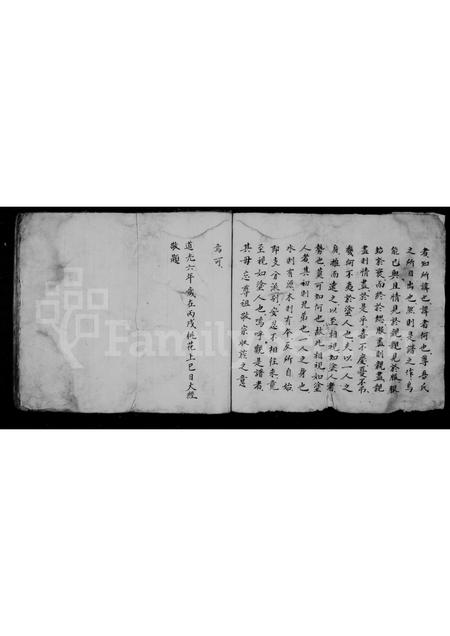 者知所諱也諱者何也尊吾氏
之所自出也然則是譜之作烏
能已與且情見於親親見於服服
始於衰而終於緦服盡則親盡親
盡則情盡於是乎喜不慶憂不吊
幾何不夷於塗人也夫以一人之
身離而遠之以至相視如塗人者
勢也莫可如何也故凡相視如塗
人者其初則兄弟也一人之身也
水則有源木則有本反所自始
即支分派別安忍不相往來竟
至視如塗人也嗚呼觀是譜者
其毋忘尊祖敬宗收族之意
焉可
道光六年歲在丙戌桃花上巳日大經
敬題
Family